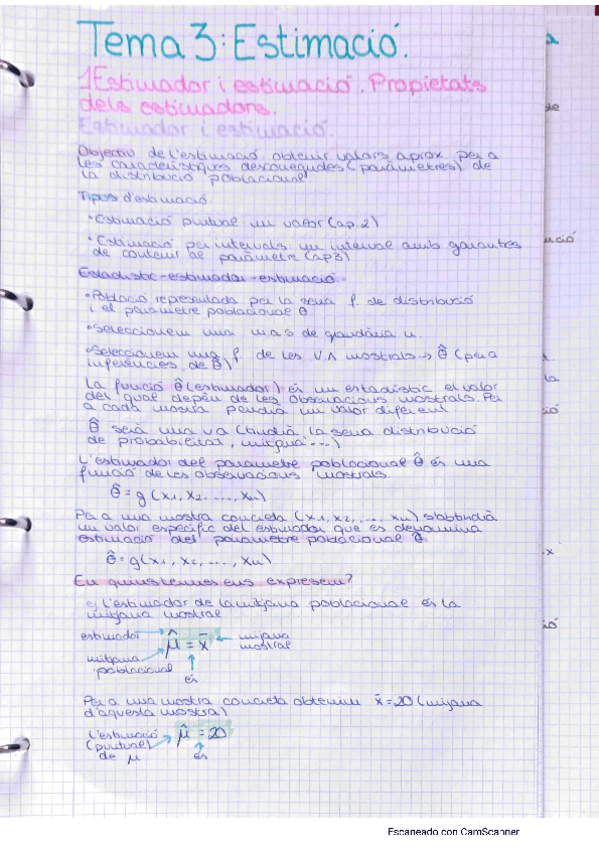 Tema 3: Estimació.
1 Estimador i estimació. Propietats
dels estimadors.
Estimador i estimació.
Objectiu de l'estimació: obtenir valors aprox. per a
les característiques desconegudes (paràmetres) de
la distribució poblacional
Tipus d'estimació
• Estimació puntual: un valor (ap. 2)
• Estimació per intervals: un interval amb garanties
de contenir el paràmetre (ap 3)
Estadístic-estimador-estimació
• Població representada per la seva f. de distribució
i el paràmetre poblacional θ
• Seleccionem una m.a.s de grandària n.
• Seleccionem una f. de les V.A mostrals → θ̂ (per a
inferències de θ)
La funció θ̂ (estimador) és un estadístic el valor
del qual depèn de les observacions mostrals. Per
a cada mostra pendrà un valor diferent
θ̂ serà una va (tindrà la seva distribució
de probabilitat, mitjana ...)
L'estimador del paràmetre poblacional θ̂ és una
funció de les observacions mostrals.
θ̂ = g (x₁, x₂, ..., xₙ)
Per a una mostra concreta (x₁, x₂, ..., xₙ) s'obtindrà
un valor específic del estimador que es denomina
estimació del paràmetre poblacional θ.
θ̂ = g(x₁, x₂, ..., xₙ)
En quins termes ens expresem?
ej l'estimador de la mitjana poblacional és la
mitjana mostral
estimador
μ̂ = x̄
mitjana
mostral
mitjana
poblacional
és
Per a una mostra concreta obtenim x̄ = 20 (mitjana
d'aquesta mostra)
l'estimació
(puntual)
de μ
μ̂ = 20
és
Escaneado con CamScanner